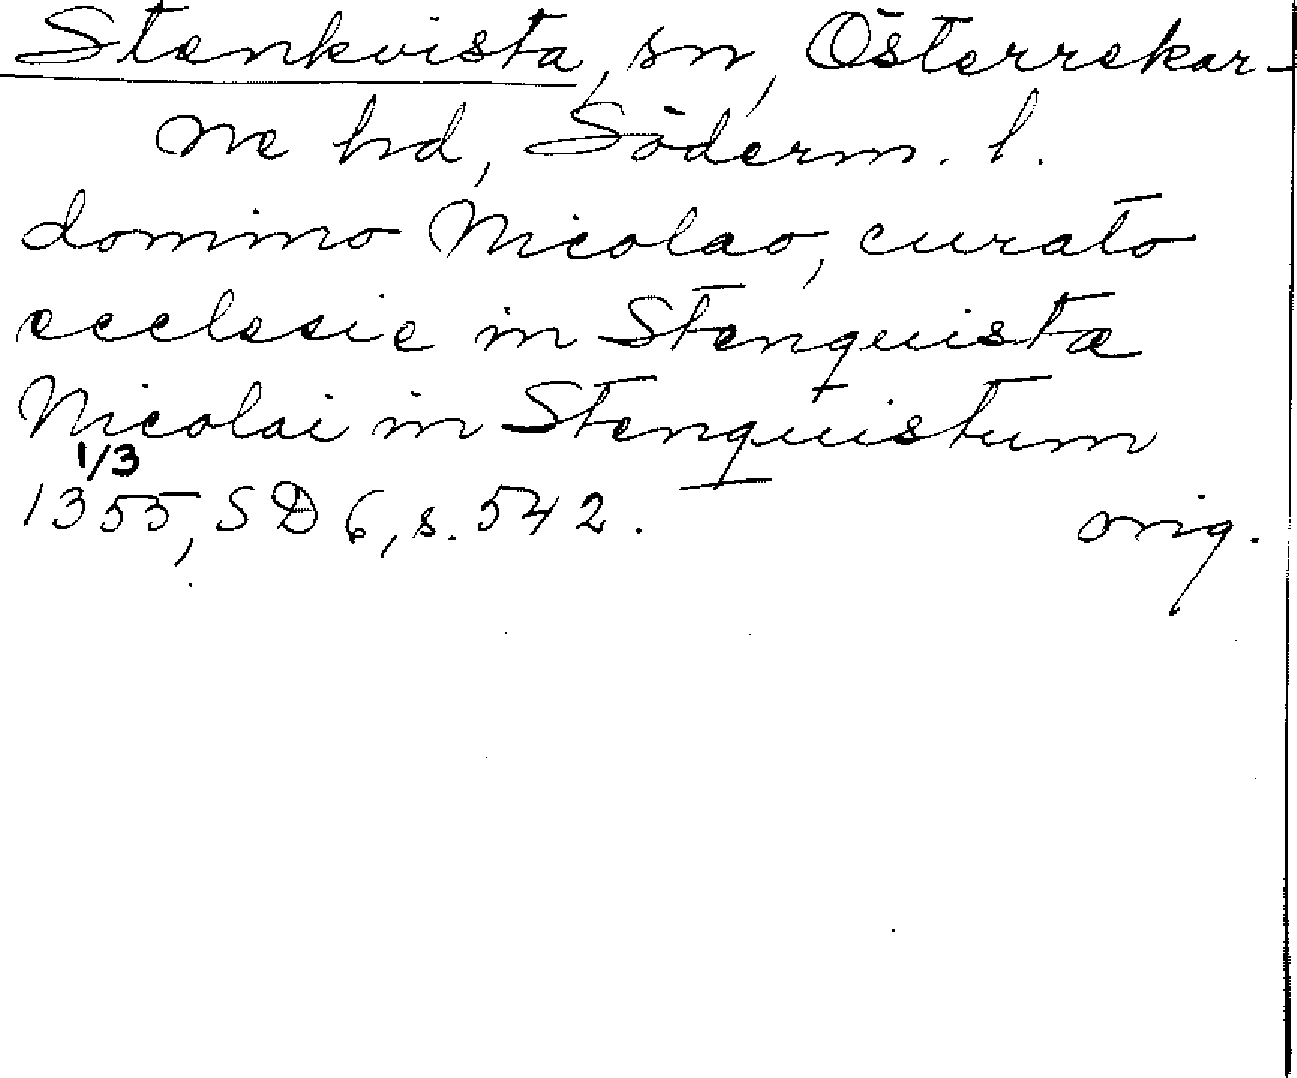 Stenkvista, sn, Österrekar-
ne hd, Söderm. l.
domino Nicolao, curato
ecclesie in Stenquista
Nicolai in Stenquistum
1/3
1355, SD 6, s. 542. orig.